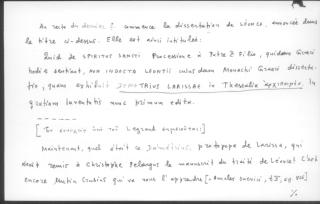 Au recto du dernier f. commence la dissertation de LEONCE, annoncée dans
le titre ci-dessus. Elle est ainsi intitulée:
Quid de SPIRITUS SANCTI Processione à Patre & Filio, quidam Graeci
hodie sentiant, NON INDOCTA LEONTII cuiusdam Monachi Graeci disserta-
tio, quam exhibuit DEMETRIUS LARISSAE in Thessalia in
gratiam iuventutis nunc primum edita.
Legrand
Maintenant, quel était ce Démétrius, protopape de Larissa, qui
avait remis à Christophe Pelargus le manuscrit du traité de Léonce? C'est
encore Martin Crusius qui va nous l'apprendre